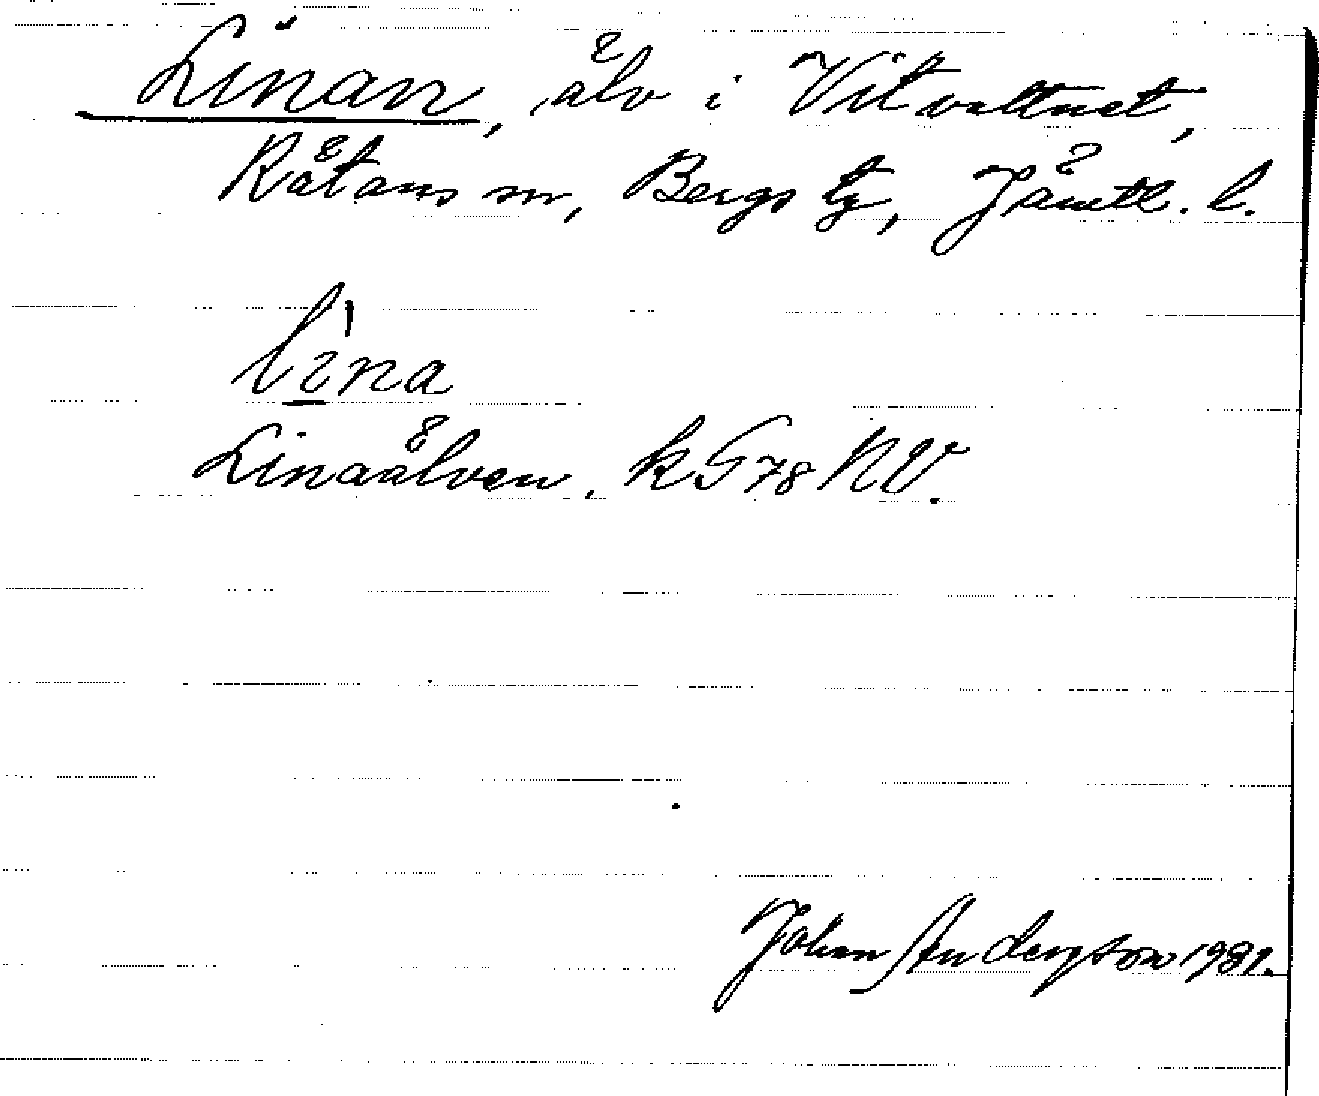 Linan, älv i Vitvattnet,
Rätans sn, Bergs tg, Jämtl. l.
li̱'na
Linaälven. kG78 NV.
Johan Andersson 1931.